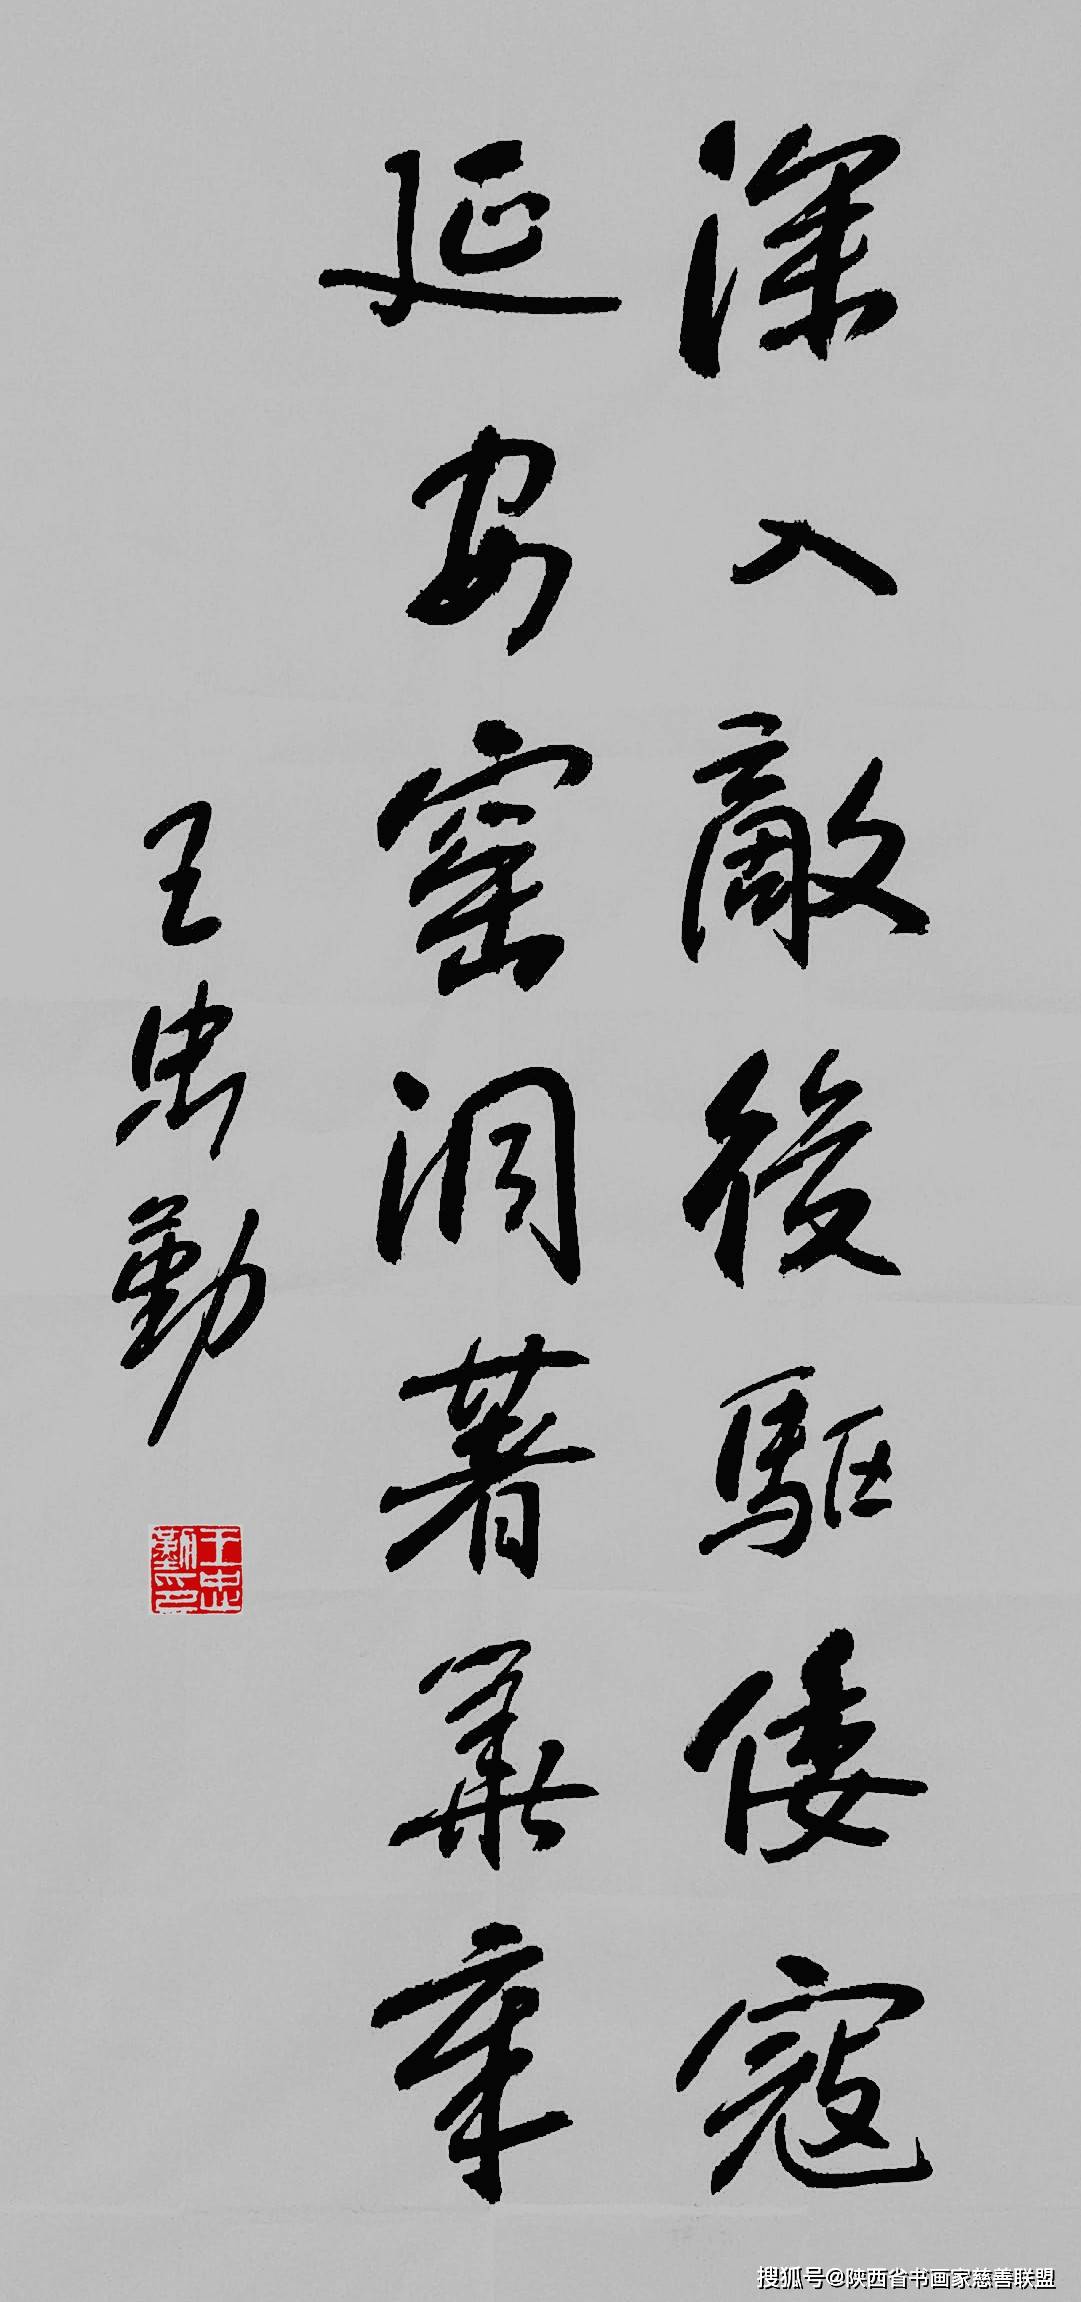 深入敵後驅倭寇
延安窑洞著華章
王忠勤
王忠
勤印
搜狐号@陕西省书画家慈善联盟